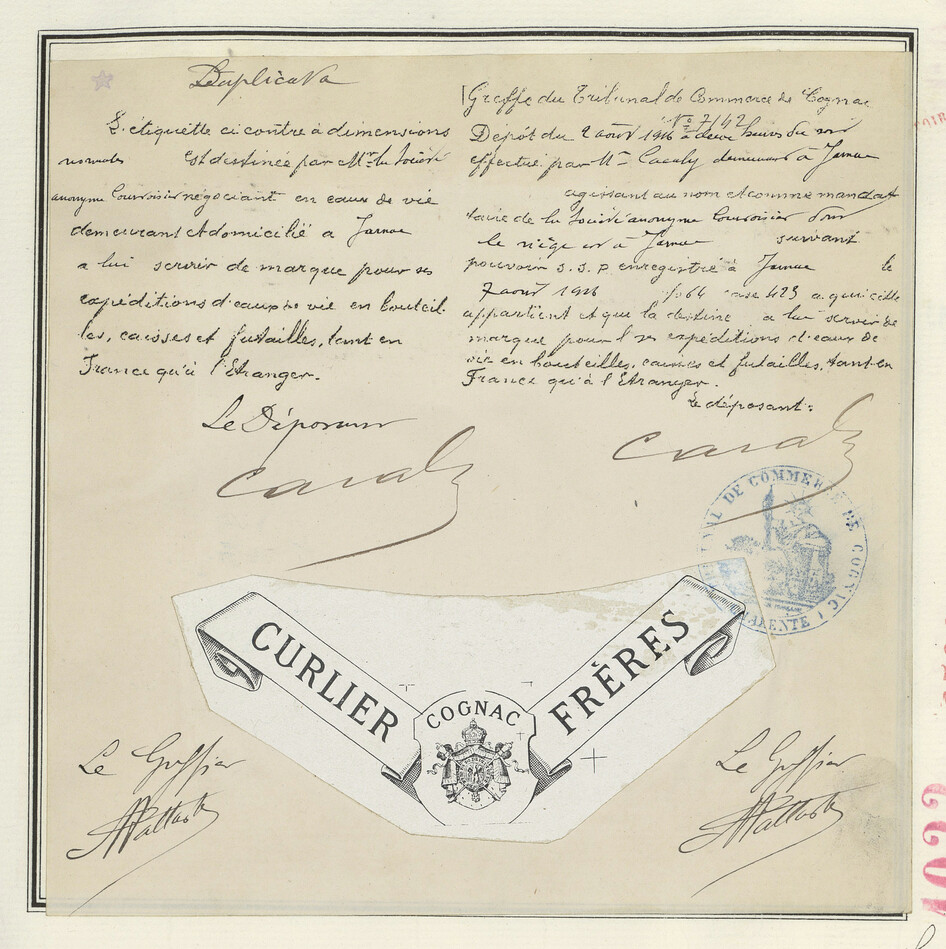 Duplicata
L'étiquette ci contre à dimensions
normales est destinée par Mr. la Société
anonyme Courvoisier négociant en eaux de vie
demeurant et domicilié à Jarnac
à lui servir de marque pour ses
expéditions d'eaux de vie en bouteil-
les, caisses et futailles, tant en
France qu'à l'étranger.
Le Déposant
Greffe du Tribunal de Commerce de Cognac
No 7142
Dépôt du 2 aout 1916 à deux heures du soir
effectué par Mr demeurant à Jarnac
agissant au nom et comme mandat
taire de la Société anonyme Courvoisier dont
le siège est à Jarnac suivant
pouvoir S.S.P. enregistré à Jarnac le
7 aout 1916 fo 64 case 423 à qui cette
appartient et que la destine à lui servir de
marque pour ses expéditions d'eaux de
vie en bouteilles, caisses et futailles, tant en
France qu'à l'Etranger.
Le déposant:
TRIBUNAL DE COMMERCE DE COGNAC
CHARENTE
CURLIER FRÈRES
COGNAC
Le Greffier
Le Greffier